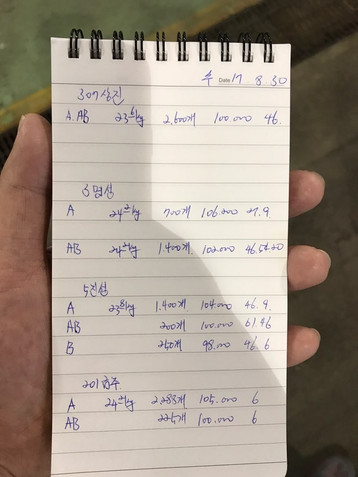 수 Date 17 . 8 . 30
307상진
A.AB 23 2,600개 100.000 46.
3명성
A 24 700개 106.000 27.9.
AB 24 1.400개 102.000 46.54.20
5진성
A 23 1.400개 104.000 46.9.
AB 200개 100.000 61.46
B 250개 98.000 46.6
201
A 24 2.288개 105.000 6
AB 225개 100.000 6